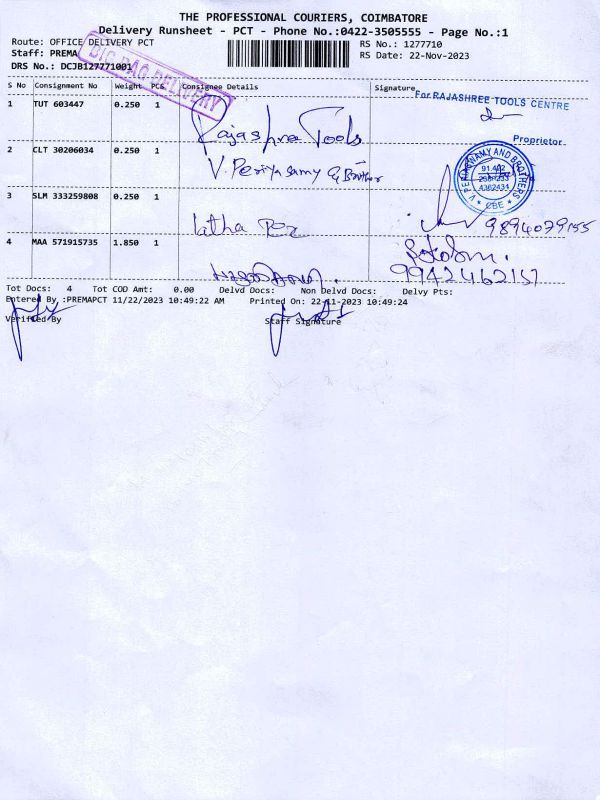 THE PROFESSIONAL COURIERS, COIMBATORE
Delivery Runsheet - PCT - Phone No.:0422-3505555 - Page No.:1
Route: OFFICE DELIVERY PCT
RS No.: 1277710
Staff: PREMA
RS Date: 22-Nov-2023
DRS No.: DCJB127771001
BIG BAG DELIVERY
S No Consignment No Weight PCS Consignee Details Signature
For RAJASHREE TOOLS CENTRE
1 TUT 603447 0.250 1 Rajashree Tools
Proprietor
2 CLT 30206034 0.250 1 V. Periyasamy & Brother
V PERIYASWAMY AND BROTHERS
CBE
3 SLM 333259808 0.250 1 latha
9894079155
4 MAA 571915735 1.850 1
9942462157
Tot Docs: 4 Tot COD Amt: 0.00 Delvd Docs: Non Delvd Docs: Delvy Pts:
Entered By :PREMAPCT 11/22/2023 10:49:22 AM Printed On: 22-11-2023 10:49:24
Verified By Staff Signature